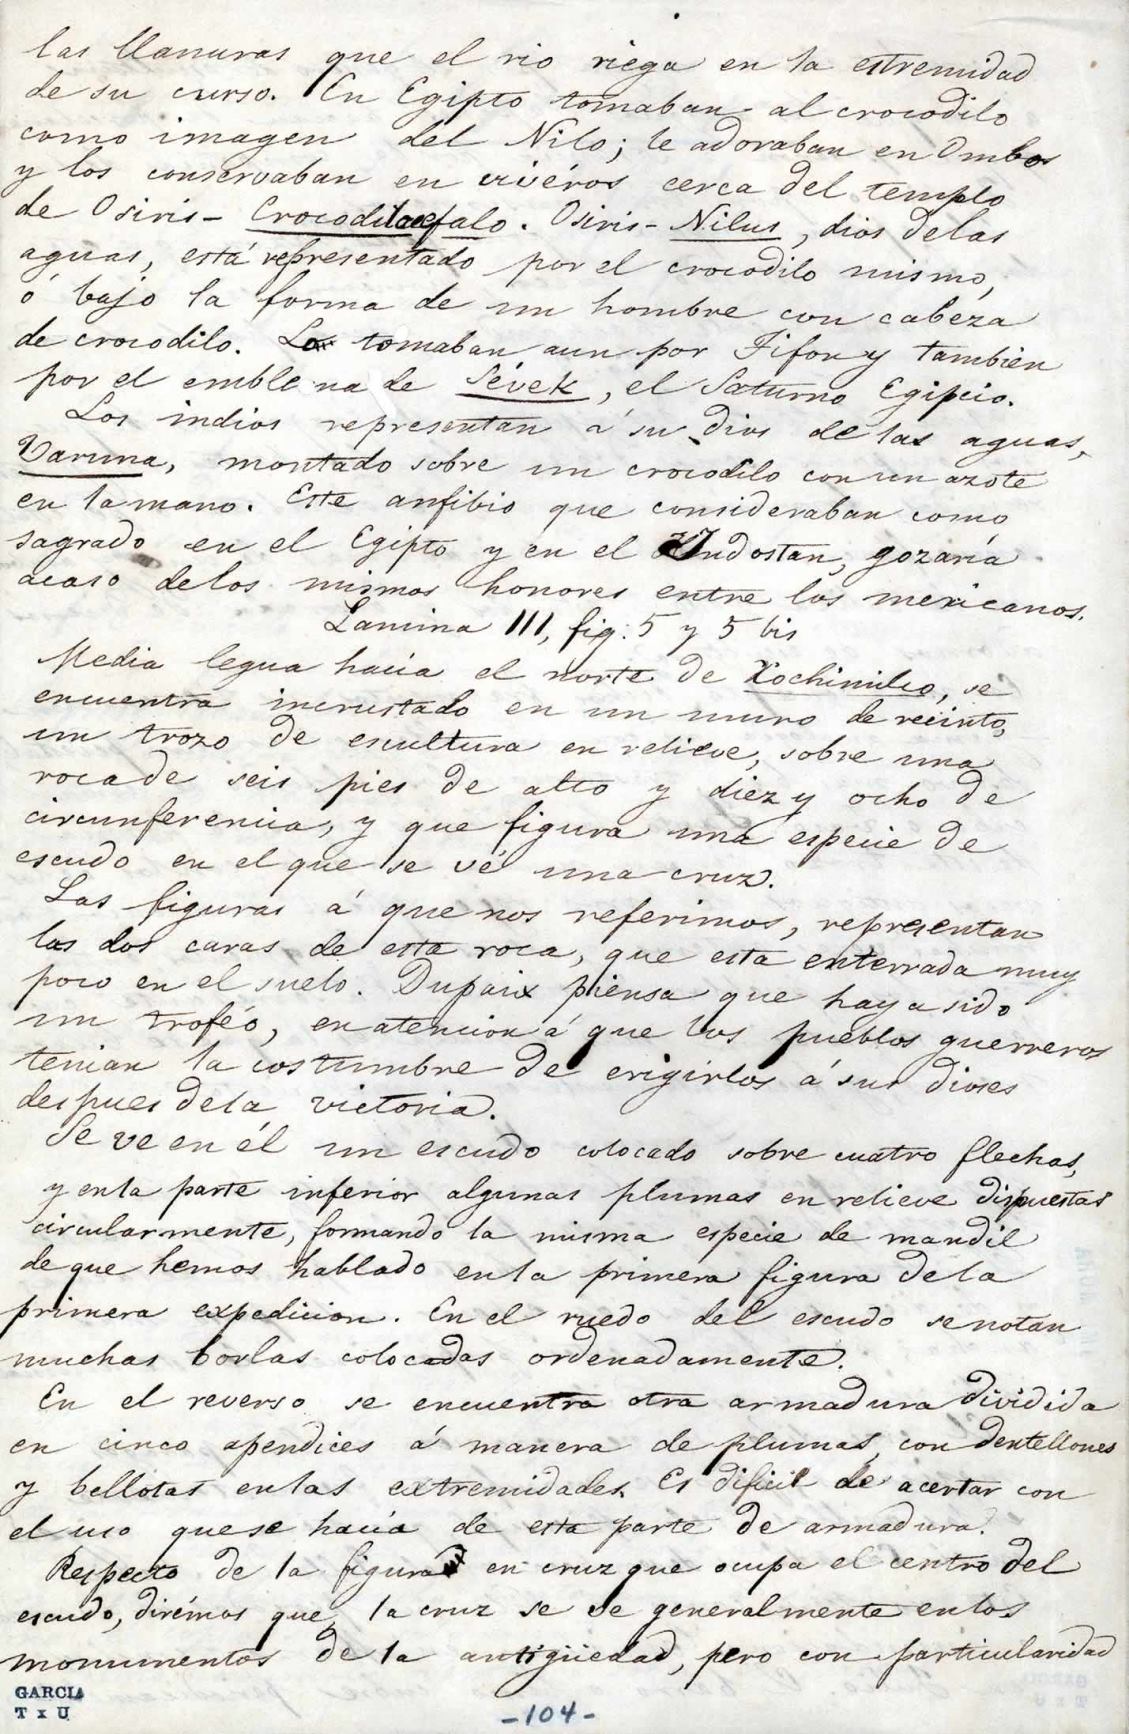 las llanuras que el rio riega en la estremidad
de su curso. En Egipto tomaban al crocodilo
como imagen del Nilo; le adoraban en Ombos
y los conservaban en vivéros cerca del templo
de Osiris-Crocodilocefalo. Osiris-Nilus, dios de las
aguas, está representado por el crocodilo mismo,
ó bajo la forma de un hombre con cabeza
de crocodilo. Lo tomaban aun por Tifon y tambien
por el emblema de Sévek, el Saturno Egipcio.
Los indios representan á su dios de las aguas,
Varuna, montado sobre un crocodilo con un azote
en la mano. Este anfibio que consideraban como
sagrado en el Egipto y en el Indostan, gozaría
acaso de los mismos honores entre los mexicanos.
Lamina III, fig. 5 y 5 bis
Media legua hacia el norte de Xochimilco, se
encuentra incrustado en un muro de recinto,
un trozo de escultura en relieve, sobre una
roca de seis pies de alto y diez y ocho de
circunferencia, y que figura una especie de
escudo en el que se vé una cruz.
Las figuras á que nos referimos, representan
las dos caras de esta roca, que está enterrada muy
poco en el suelo. Dupaix piensa que haya sido
un troféo, en atencion á que los pueblos guerreros
tenian la costumbre de erigirlos á sus dioses
despues de la victoria.
Se ve en él un escudo colocado sobre cuatro flechas,
y en la parte inferior algunas plumas en relieve dispuestas
circularmente, formando la misma especie de mandil
de que hemos hablado en la primera figura de la
primera expedicion. En el ruedo del escudo se notan
muchas borlas colocadas ordenadamente.
En el reverso se encuentra otra armadura dividida
en cinco apendices á manera de plumas, con dentellones
y bellotas en las extremidades. Es dificil de acertar con
el uso que se hacia de esta parte de armadura.
Respecto de la figura en cruz que ocupa el centro del
escudo, dirémos que, la cruz se ve generalmente en los
monumentos de la antigüedad, pero con particularidad
GARCIA
T x U
-104-